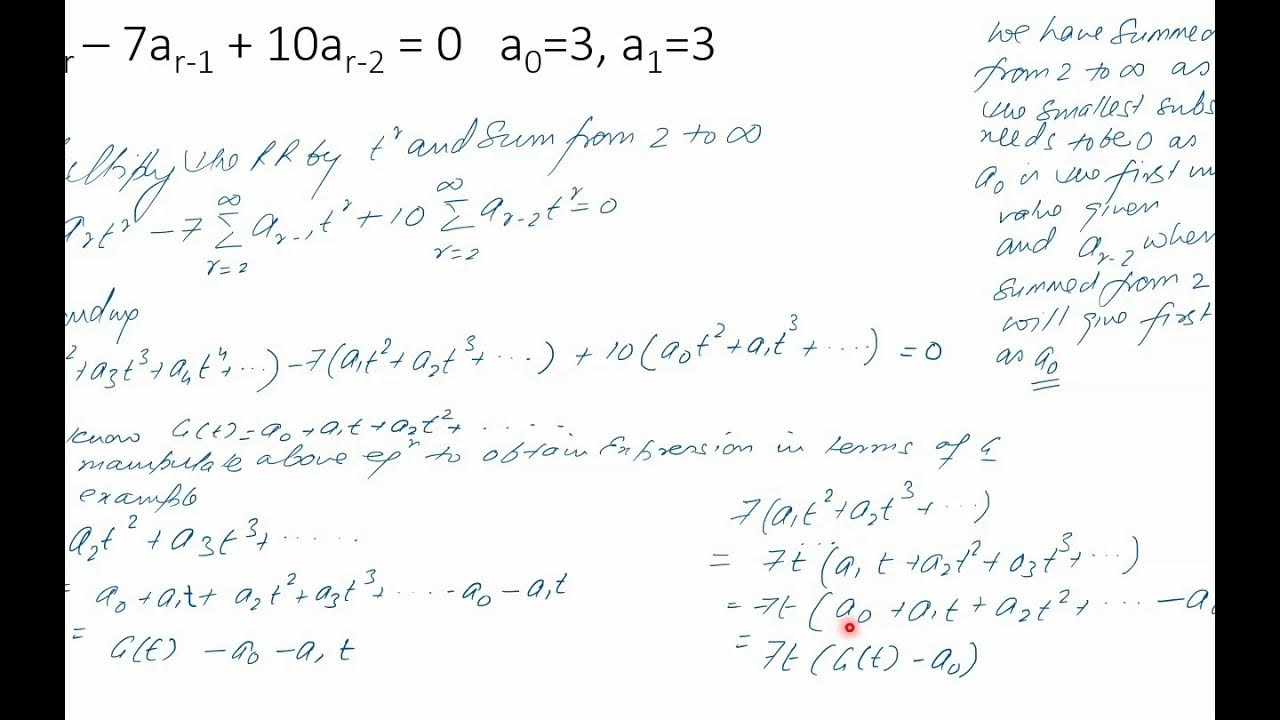 r – 7a_{r-1} + 10a_{r-2} = 0 a_0=3, a_1=3
ultiply the RR by t^r and sum from 2 to ∞
a_r t^r − 7 ∑_{r=2}^{∞} a_{r-1} t^r + 10 ∑_{r=2}^{∞} a_{r-2} t^r = 0
^2 + a_3t^3 + a_4t^4 + ...) − 7(a_1t^2 + a_2t^3 + ....) + 10(a_0t^2 + a_1t^3 + ....) = 0
know G(t) = a_0 + a_1t + a_2t^2 + .....
manipulate above eq^n to obtain Expression in terms of G
example
a_2t^2 + a_3t^3 + .....
= a_0 + a_1t + a_2t^2 + a_3t^3 + .... - a_0 - a_1t
= G(t) − a_0 − a_1t
7(a_1t^2 + a_2t^3 + ...)
= 7t (a_1t + a_2t^2 + a_3t^3 + ...)
= 7t (a_0 + a_1t + a_2t^2 + ... − a_0
= 7t (G(t) − a_0)
we have summed
from 2 to ∞ as
the smallest subs
needs to be 0 as
a_0 is the first in
value given
and a_{r-2} when
summed from 2
will give first
as a_0